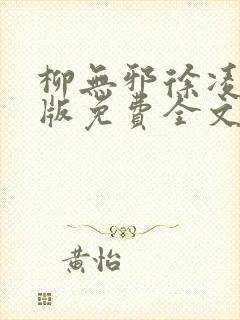 柳無邪徐凌
版免費全文
黃怡